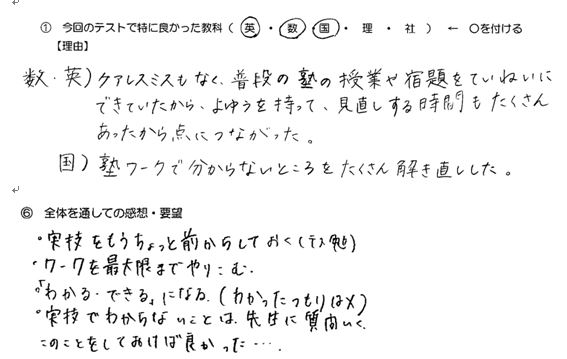 ① 今回のテストで特に良かった教科（ 英 ・ 数 ・ 国 ・ 理 ・ 社 ） ← ○を付ける
【理由】
数・英）ケアレスミスもなく、普段の塾の授業や宿題をていねいに
できていたから、よゆうを持って、見直しする時間もたくさん
あったから点につながった。
国）塾ワークで分からないところをたくさん解き直しした。
⑥ 全体を通しての感想・要望
・実技をもうちょっと前からしておく（テス勉）
・ワークを最大限までやりこむ。
・「わかる・できる」になる。（わかったつもりは×）
・実技でわからないことは、先生に質問いく。
このことをしておけば良かった…。